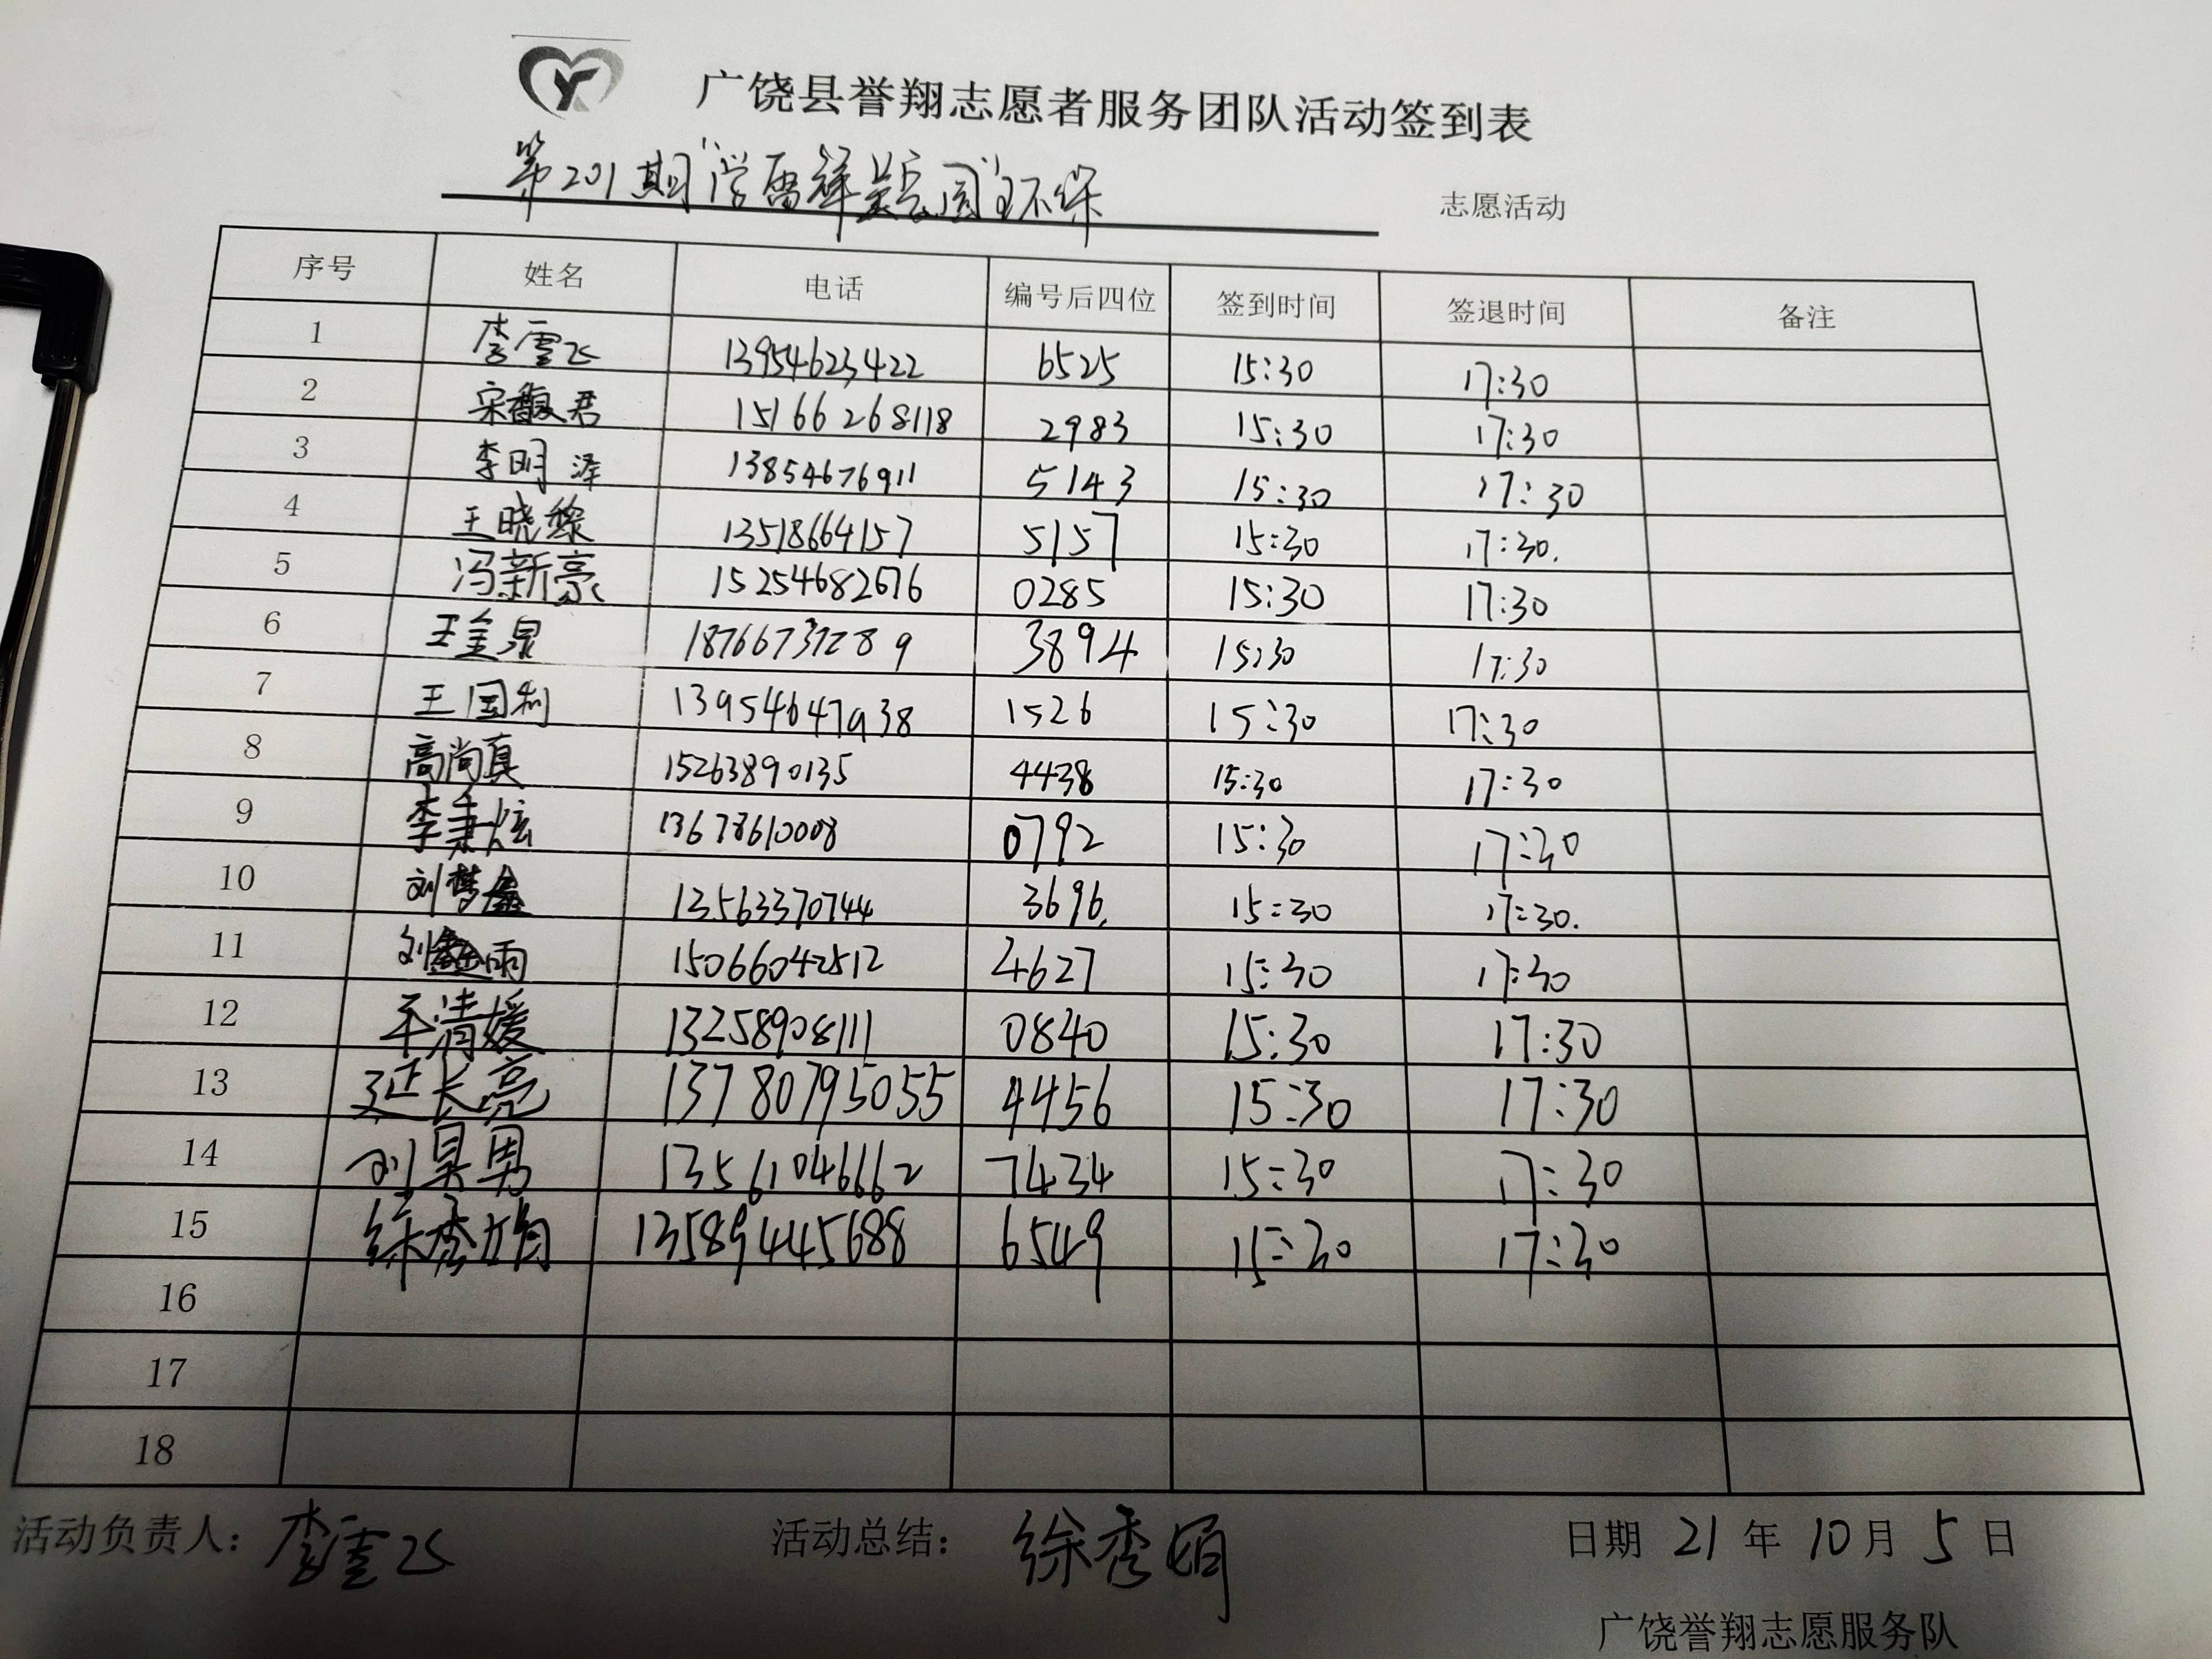 广饶县誉翔志愿者服务团队活动签到表
第201期"学雷锋 家园"环保 志愿活动
序号 姓名 电话 编号后四位 签到时间 签退时间 备注
1 李雪飞 13954623422 6525 15:30 17:30
2 宋馥君 15166268118 2983 15:30 17:30
3 李明泽 13854676911 5143 15:30 17:30
4 王晓 13518664157 5157 15:30 17:30.
5 冯新豪 15254682676 0285 15:30 17:30
6 王金泉 18766737289 3894 15:30 17:30
7 王国利 13954647938 1526 15:30 17:30
8 高尚真 15263890135 4438 15:30 17:30
9 李秉炫 13678610008 0792 15:30 17:30
10 刘梦 13563370744 3696. 15:30 17:30.
11 刘 雨 15066042512 4627 15:30 17:30
12 清媛 13258908111 0840 15:30 17:30
13 延长亮 13780795055 4456 15:30 17:30
14 刘昊男 13561046662 7434 15:30 17:30
15 徐秀娟 13589445688 6549 15:30 17:30
16
17
18
活动负责人：李雪飞 活动总结：徐秀娟 日期 21 年 10 月 5 日
广饶誉翔志愿服务队